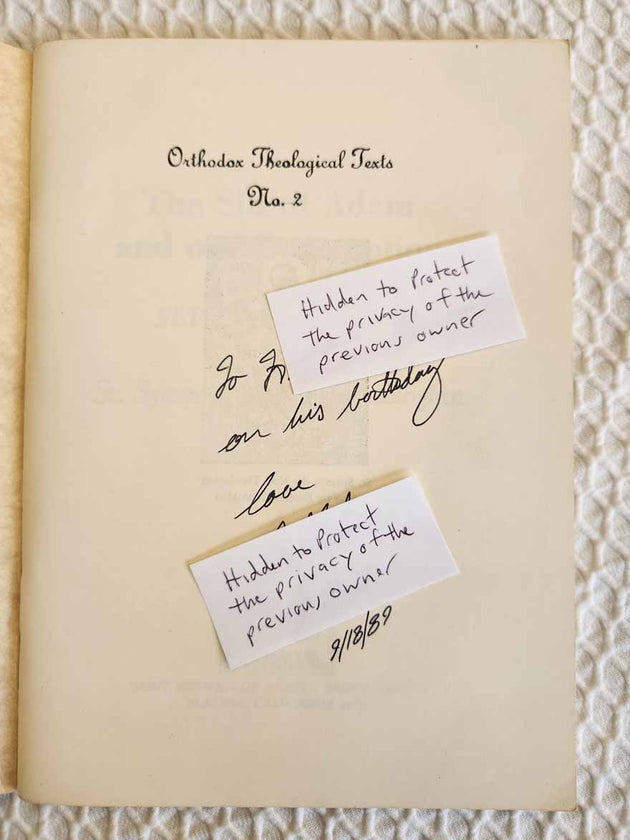 Orthodox Theological Texts
No. 2
Hidden to Protect
the privacy of the
previous owner
To Fr.
on his birthday
love
Hidden to Protect
the privacy of the
previous owner
9/18/89